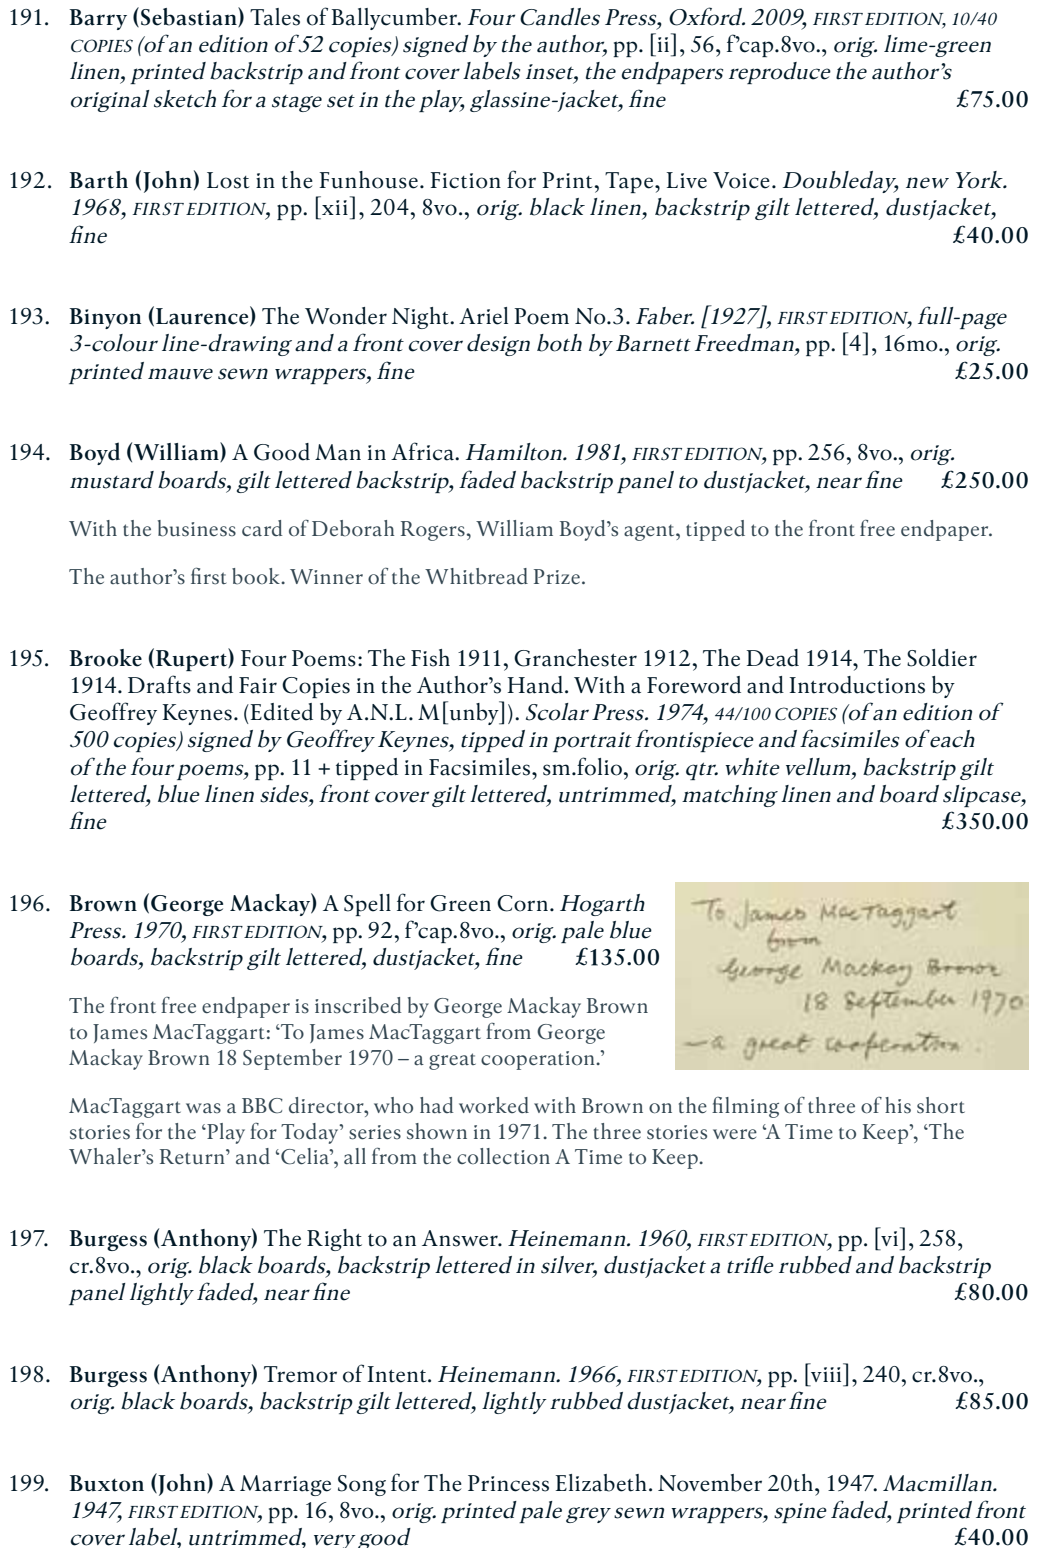 191. Barry (Sebastian) Tales of Ballycumber. Four Candles Press, Oxford. 2009, FIRST EDITION, 10/40
COPIES (of an edition of 52 copies) signed by the author, pp. [ii], 56, f'cap.8vo., orig. lime-green
linen, printed backstrip and front cover labels inset, the endpapers reproduce the author's
original sketch for a stage set in the play, glassine-jacket, fine £75.00
192. Barth (John) Lost in the Funhouse. Fiction for Print, Tape, Live Voice. Doubleday, new York.
1968, FIRST EDITION, pp. [xii], 204, 8vo., orig. black linen, backstrip gilt lettered, dustjacket,
fine £40.00
193. Binyon (Laurence) The Wonder Night. Ariel Poem No.3. Faber. [1927], FIRST EDITION, full-page
3-colour line-drawing and a front cover design both by Barnett Freedman, pp. [4], 16mo., orig.
printed mauve sewn wrappers, fine £25.00
194. Boyd (William) A Good Man in Africa. Hamilton. 1981, FIRST EDITION, pp. 256, 8vo., orig.
mustard boards, gilt lettered backstrip, faded backstrip panel to dustjacket, near fine £250.00
With the business card of Deborah Rogers, William Boyd's agent, tipped to the front free endpaper.
The author's first book. Winner of the Whitbread Prize.
195. Brooke (Rupert) Four Poems: The Fish 1911, Granchester 1912, The Dead 1914, The Soldier
1914. Drafts and Fair Copies in the Author's Hand. With a Foreword and Introductions by
Geoffrey Keynes. (Edited by A.N.L. M[unby]). Scolar Press. 1974, 44/100 COPIES (of an edition of
500 copies) signed by Geoffrey Keynes, tipped in portrait frontispiece and facsimiles of each
of the four poems, pp. 11 + tipped in Facsimiles, sm.folio, orig. qtr. white vellum, backstrip gilt
lettered, blue linen sides, front cover gilt lettered, untrimmed, matching linen and board slipcase,
fine £350.00
196. Brown (George Mackay) A Spell for Green Corn. Hogarth
Press. 1970, FIRST EDITION, pp. 92, f'cap.8vo., orig. pale blue
boards, backstrip gilt lettered, dustjacket, fine £135.00
The front free endpaper is inscribed by George Mackay Brown
to James MacTaggart: 'To James MacTaggart from George
Mackay Brown 18 September 1970 – a great cooperation.'
To James MacTaggart
from
George Mackay Brown
18 September 1970
– a great cooperation.
MacTaggart was a BBC director, who had worked with Brown on the filming of three of his short
stories for the 'Play for Today' series shown in 1971. The three stories were 'A Time to Keep', 'The
Whaler's Return' and 'Celia', all from the collection A Time to Keep.
197. Burgess (Anthony) The Right to an Answer. Heinemann. 1960, FIRST EDITION, pp. [vi], 258,
cr.8vo., orig. black boards, backstrip lettered in silver, dustjacket a trifle rubbed and backstrip
panel lightly faded, near fine £80.00
198. Burgess (Anthony) Tremor of Intent. Heinemann. 1966, FIRST EDITION, pp. [viii], 240, cr.8vo.,
orig. black boards, backstrip gilt lettered, lightly rubbed dustjacket, near fine £85.00
199. Buxton (John) A Marriage Song for The Princess Elizabeth. November 20th, 1947. Macmillan.
1947, FIRST EDITION, pp. 16, 8vo., orig. printed pale grey sewn wrappers, spine faded, printed front
cover label, untrimmed, very good £40.00